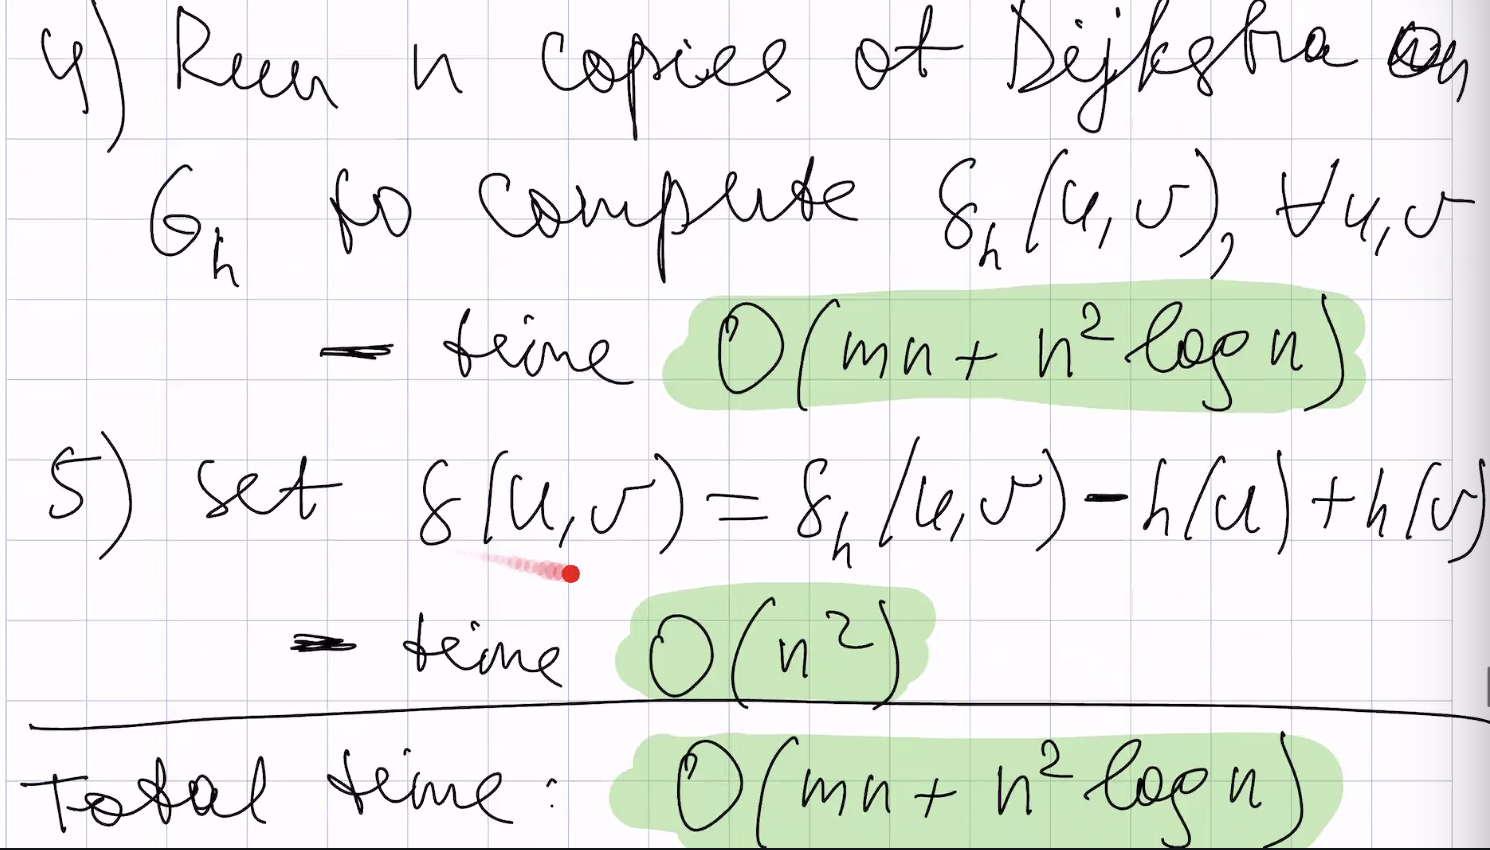 4) Run n copies of Dijkstra on
G_h to compute δ_h(u,v), ∀u,v
- time O(mn + n² log n)
5) set δ(u,v) = δ_h(u,v) - h(u) + h(v)
- time O(n²)
Total time: O(mn + n² log n)